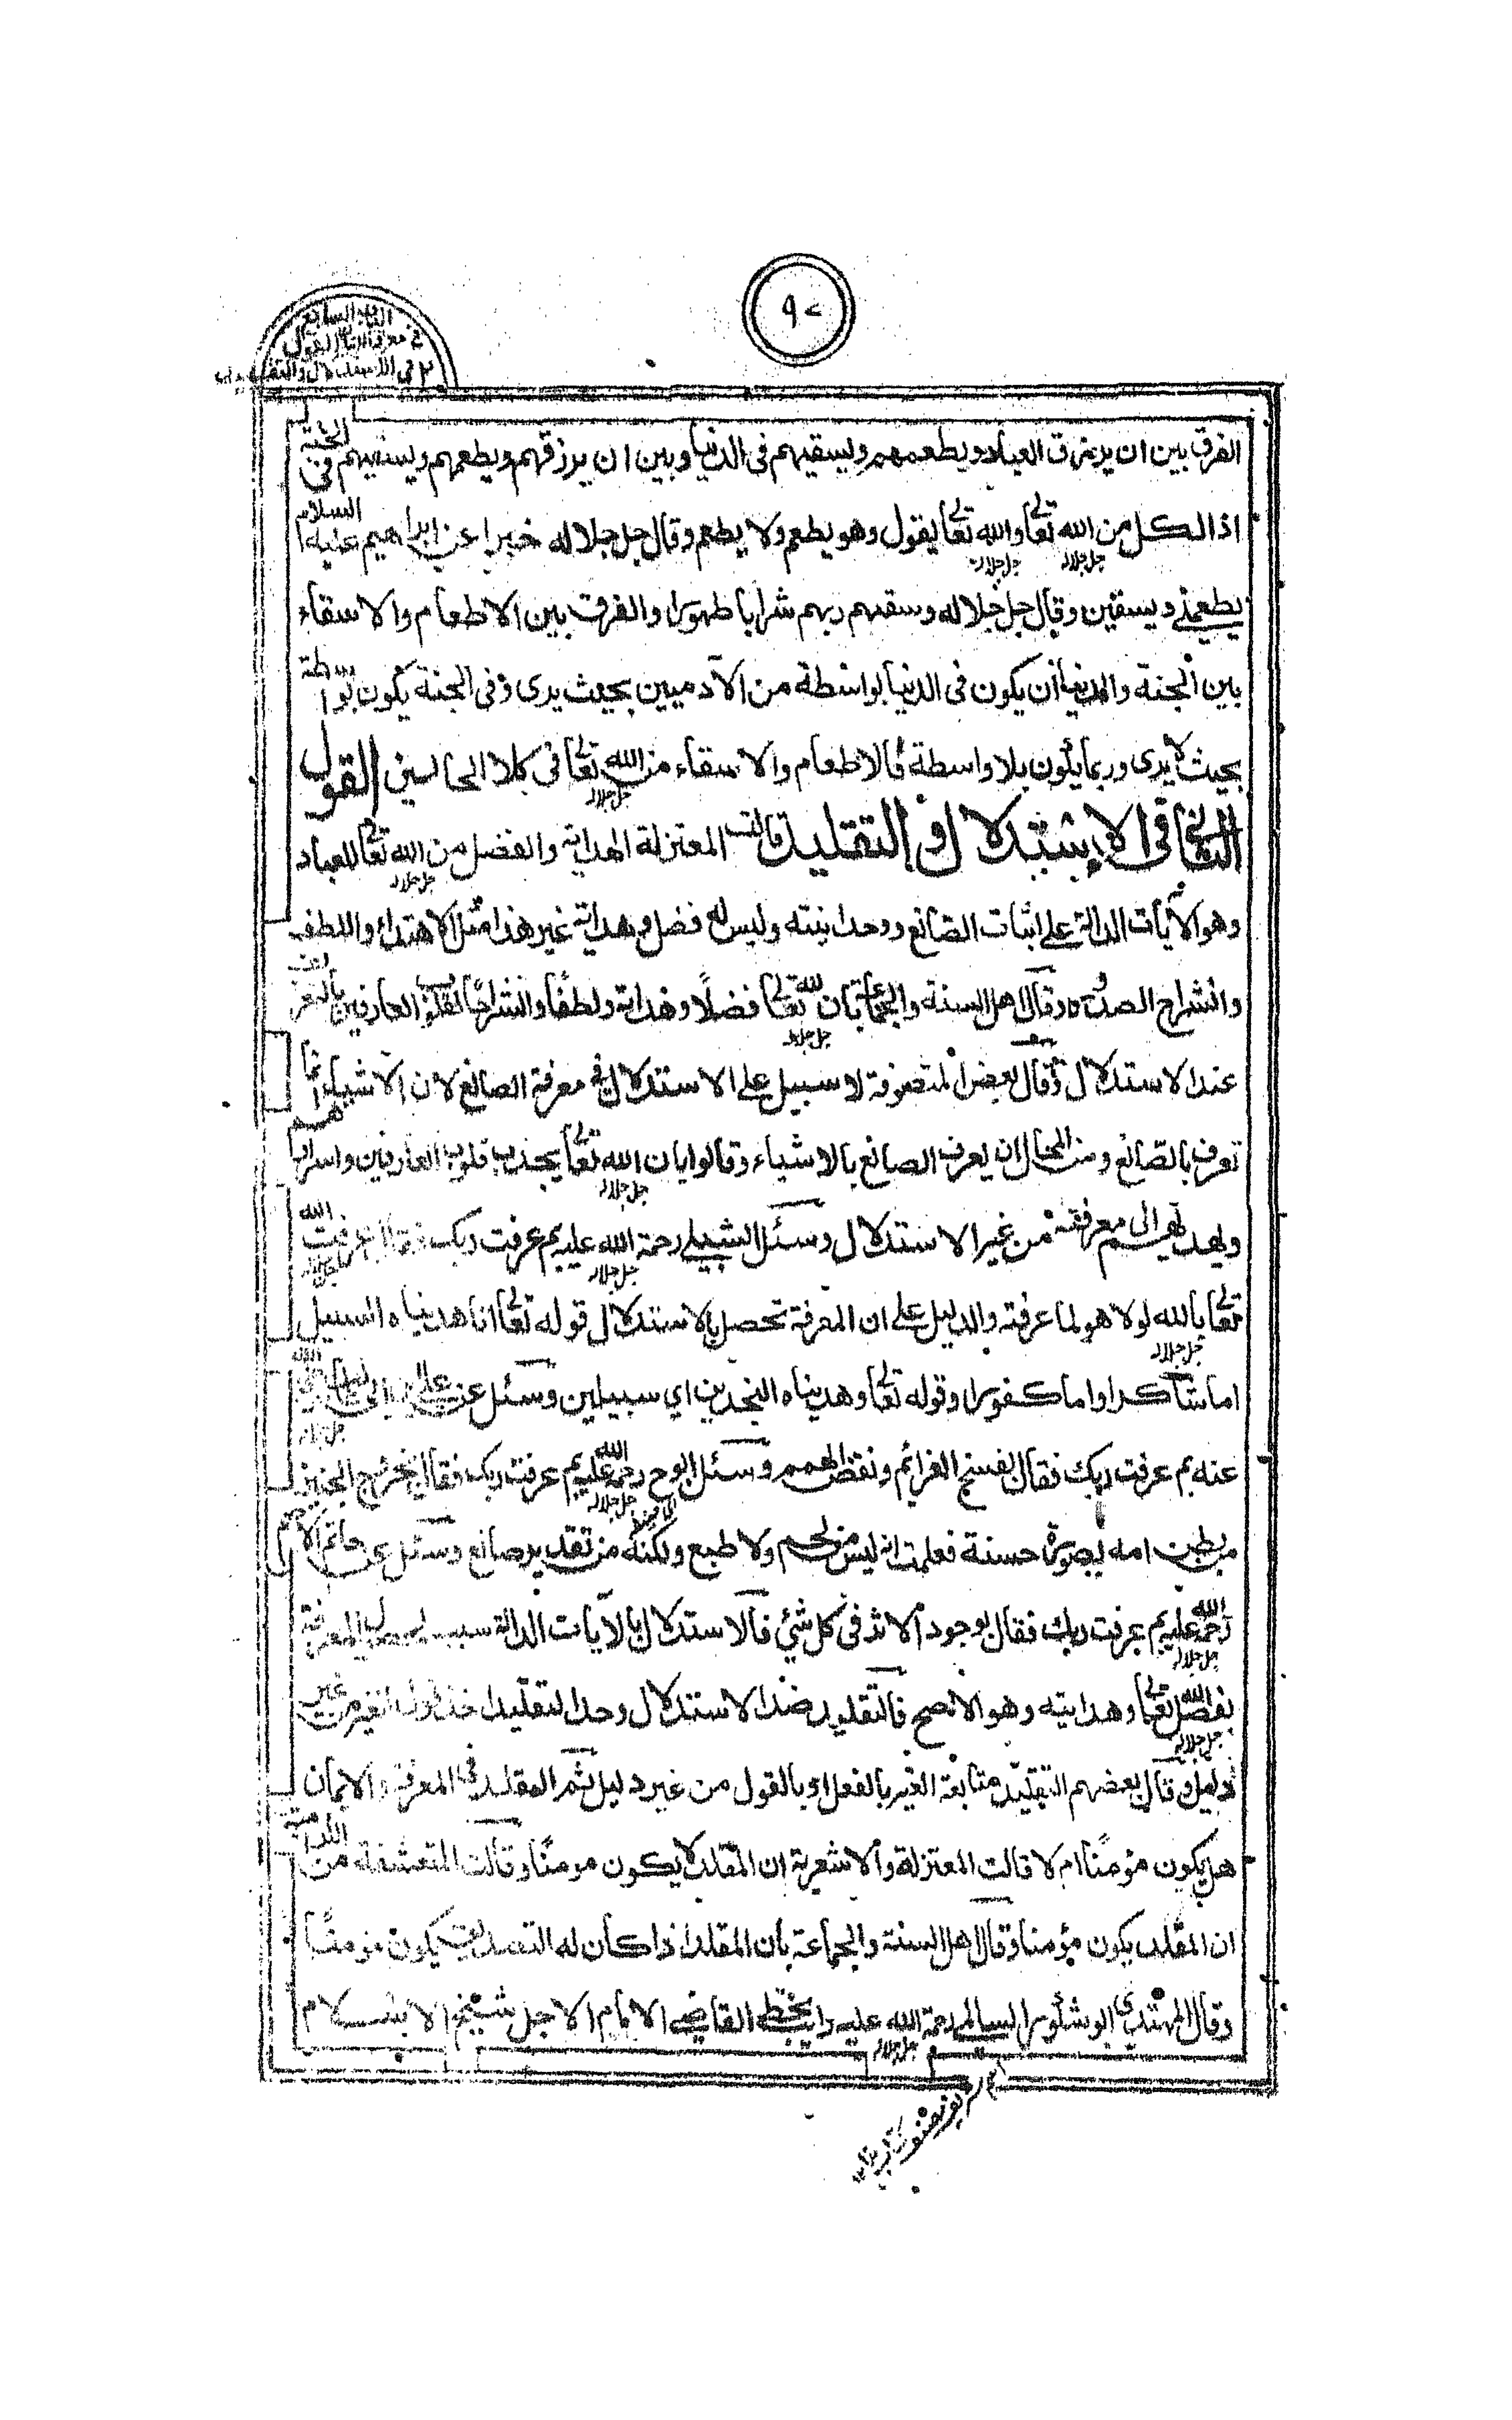 ٩٢
الباب السابع
في معرفة الايمان القول
٢ في الاستدلال والتقليد
الفرق بين ان يرزق العباد ويطعمهم ويسقيهم فى الدنيا وبين ان يرزقهم ويطعمهم ويسقيهم فى الجنة
اذ الكل من الله تعالى والله تعالى يقول وهو يطعم ولا يطعم وقال جل جلاله خبرا عن ابراهيم عليه السلام
يطعمنى ويسقين وقال جل جلاله وسقىهم ربهم شرابا طهورا والفرق بين الاطعام والاسقاء
بين الجنة والدنيا ان يكون فى الدنيا بواسطة من الآدميين بحيث يرى وفى الجنة يكون بواسطة
بحيث لا يرى وربما يكون بلا واسطة فالاطعام والاسقاء من الله تعالى فى كلا الحالين القول
الثانى فى الاستدلال و التقليد قالت المعتزلة الهداية والفضل من الله تعالى للعباد
وهو الآيات الدالة على اثبات الصانع ووحدانيته وليس له فضل وهداية غير هذا مثل الاهتداء واللطف
وانشراح الصدر وقال اهل السنة والجماعة بان لله تعالى فضلًا وهداية ولطفًا وانشراحًا لقلوب العارفين بالتعريف
عند الاستدلال وقال بعض المتصوفة لا سبيل على الاستدلال في معرفة الصانع لان الاشياء انما
تعرف بالصانع ومن المحال ان يعرف الصانع بالاشياء وقالوا بان الله تعالى يجذب قلوب العارفين واسرارهم
ويهديهم الى معرفته من غير الاستدلال وسئل الشبلى رحمة الله عليه بم عرفت ربك فقال عرفت الله
تعالى بالله لولا هو لما عرفته والدليل على ان المعرفة تحصل بالاستدلال قوله تعالى انا هديناه السبيل
اما شاكرا واما كفورا وقوله تعالى وهديناه النجدين اي سبيلين وسئل عن على بن ابى طالب رضى الله
عنه بم عرفت ربك فقال بفسخ العزائم ونقض الهمم وسئل ابو ح رحمة الله عليه بم عرفت ربك فقال بخروج الجنين
من بطن امه بصورة حسنة فعلمت انه ليس من لحم ولا طبع ولكنه من تقدير صانع وسئل عن حاتم الاصم
رحمة الله عليه بم عرفت ربك فقال بوجود الاثر فى كل شئ فالاستدلال بالآيات الدالة سبب لحصول المعرفة
بفضل الله تعالى وهدايته وهو الاصح فالتقليد ضد الاستدلال وحد التقليد اخذ قول الغير من غير
دليل وقال بعضهم التقليد متابعة الغير بالفعل او بالقول من غير دليل ثم المقلد فى المعرفة والايمان
هل يكون مؤمنًا ام لا قالت المعتزلة والاشعرية ان المقلد لا يكون مومنًا وقالت المتقشفة من الكرامية
ان المقلد يكون مؤمنا وقال اهل السنة والجماعة بان المقلد اذا كان له التصديق يكون مومنًا
وقال المهتدى ابو شكور السالمى رحمة الله عليه رايت بخط القاضى الامام الاجل شيخ الاسلام
جل جلاله